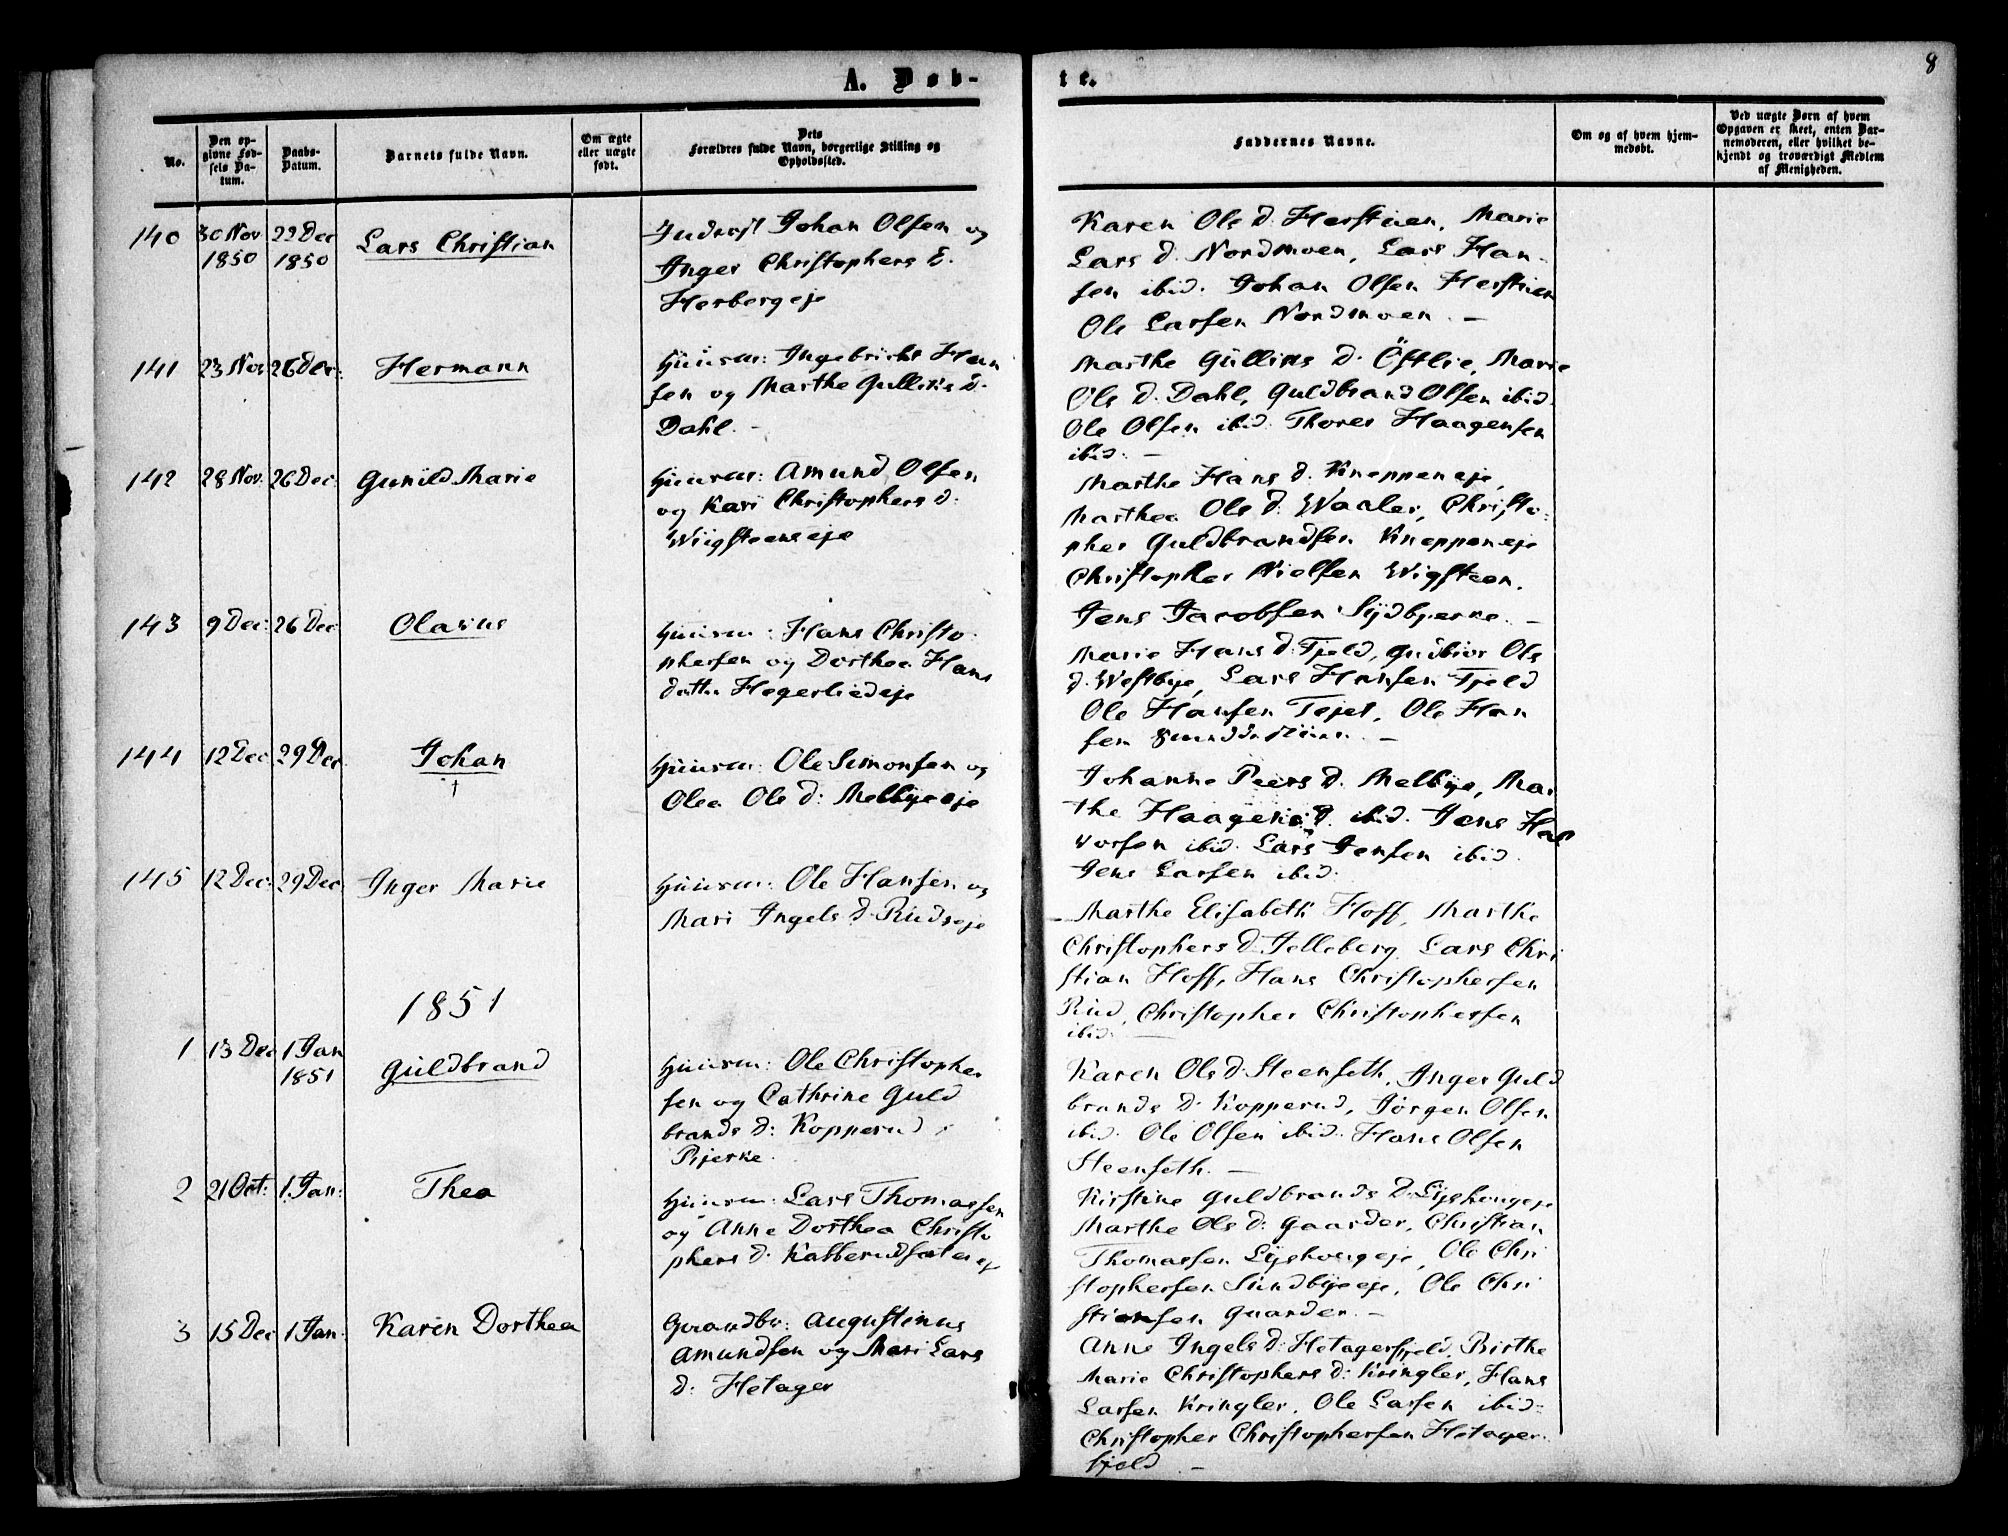 8
A. Døb-
te.
No.
Den op-
givne Fød-
sels Da-
tum.
Daabs-
Datum.
Barnets fulde Navn.
Om ægte
eller uægte
født.
Dets
Forældres fulde Navn, borgerlige Stilling og
Opholdssted.
Faddernes Navne.
Om og af hvem hjem-
medøbt.
Ved uægte Børn af hvem
Opgaven er skeet, enten Bar-
nemoderen, eller hvilket be-
kjendt og troværdigt Medlem
af Menigheden.
140
30 Nov
1850
22 Dec
1850
Lars Christian
Inderst Johan Olsen og
Inger Christophers d.
Herbergeje
Karen Ols d. Herstuen, Marie
Lars d. Nordmoen, Lars Han-
sen ibid. Johan Olsen Herstuen
Ole Larsen Nordmoen. —
141
23 Nov
26 Dec:
Hermann
Huusm: Ingebricht Han
sen og Marthe Gulliks d.
Dahl. —
Marthe Gulliks d. Östlie, Marie
Ols d. Dahl, Guldbrand Olsen ibid.
Ole Olsen ibid. Thorer Haagensen
ibid. —
142
28 Nov.
26 Dec:
Gunild Marie
Huusm: Amund Olsen
og Kari Christophers d.
Wiigsteenseje
Marthe Hans d. Kneppeneje,
Marthea Ols d: Waaler, Christo-
pher Guldbrandsen Kneppeneje
Christopher Nielsen Wigsteen.
Jens Jacobsen Sydbjerke. —
143
9 Dec:
26 Dec
Olavus
Huusm: Hans Christo-
phersen og Dorthea Hans
datter Hegerliedeje
Marie Hans d: Fjeld, Gudbior Ols
d. Westbye, Lars Hansen Fjeld
Ole Hansen Tejet, Ole Han
sen —
144
12 Dec
29 Dec.
Johan
†
Huusm: Ole Simonsen og
Olea Ols d: Melbyeeje
Johanne Peers d. Melbye, Mar
the Haagens d. ibid. Jens Hal
vorsen ibid. Lars Jensen ibid.
Jens Larsen ibid.
145
12 Dec:
29 Dec
Inger Marie
Huusm: Ole Hansen og
Mari Ingels d. Rudseje
Marthe Elisabeth Hoff, Marthe
Christophers d. Jelleberg, Lars Chri
stian Hoff, Hans Christophersen
Rud, Christopher Christophersen
ibid. —
1851
1
13 Dec
1 Jan
1851
Guldbrand
Huusm: Ole Christopher
sen og Cathrine Guld
brands d: Kopperud
Bjerke.
Karen Ols d. Steenseth, Inger Guld
brands d. Kopperud, Jörgen Olsen
ibid. Ole Olsen ibid. Hans Olsen
Steenseth. —
2
21 Oct:
1. Jan:
Thea
Huusm: Lars Thomassen
og Anne Dorthea Christo
phers d. Kabberudsæter eje
Kirstine Guldbrands d. Lysehougeje
Marthe Ols d: Gaarder, Christian
Thomassen Lysehougeje, Ole Chri
stophersen Sundbyeeje, Ole Chri
stiansen Gaarder. —
3
15 Dec
1 Jan.
Karen Dorthea
Gaardbr: Augustinus
Amundsen og Mari Lars
d: Hetager
Anne Ingels d: Hetagerfjeld, Birthe
Marie Christophers d: Kringler, Hans
Larsen Kringler, Ole Larsen ibid.
Christopher Christophersen Hetager-
fjeld —